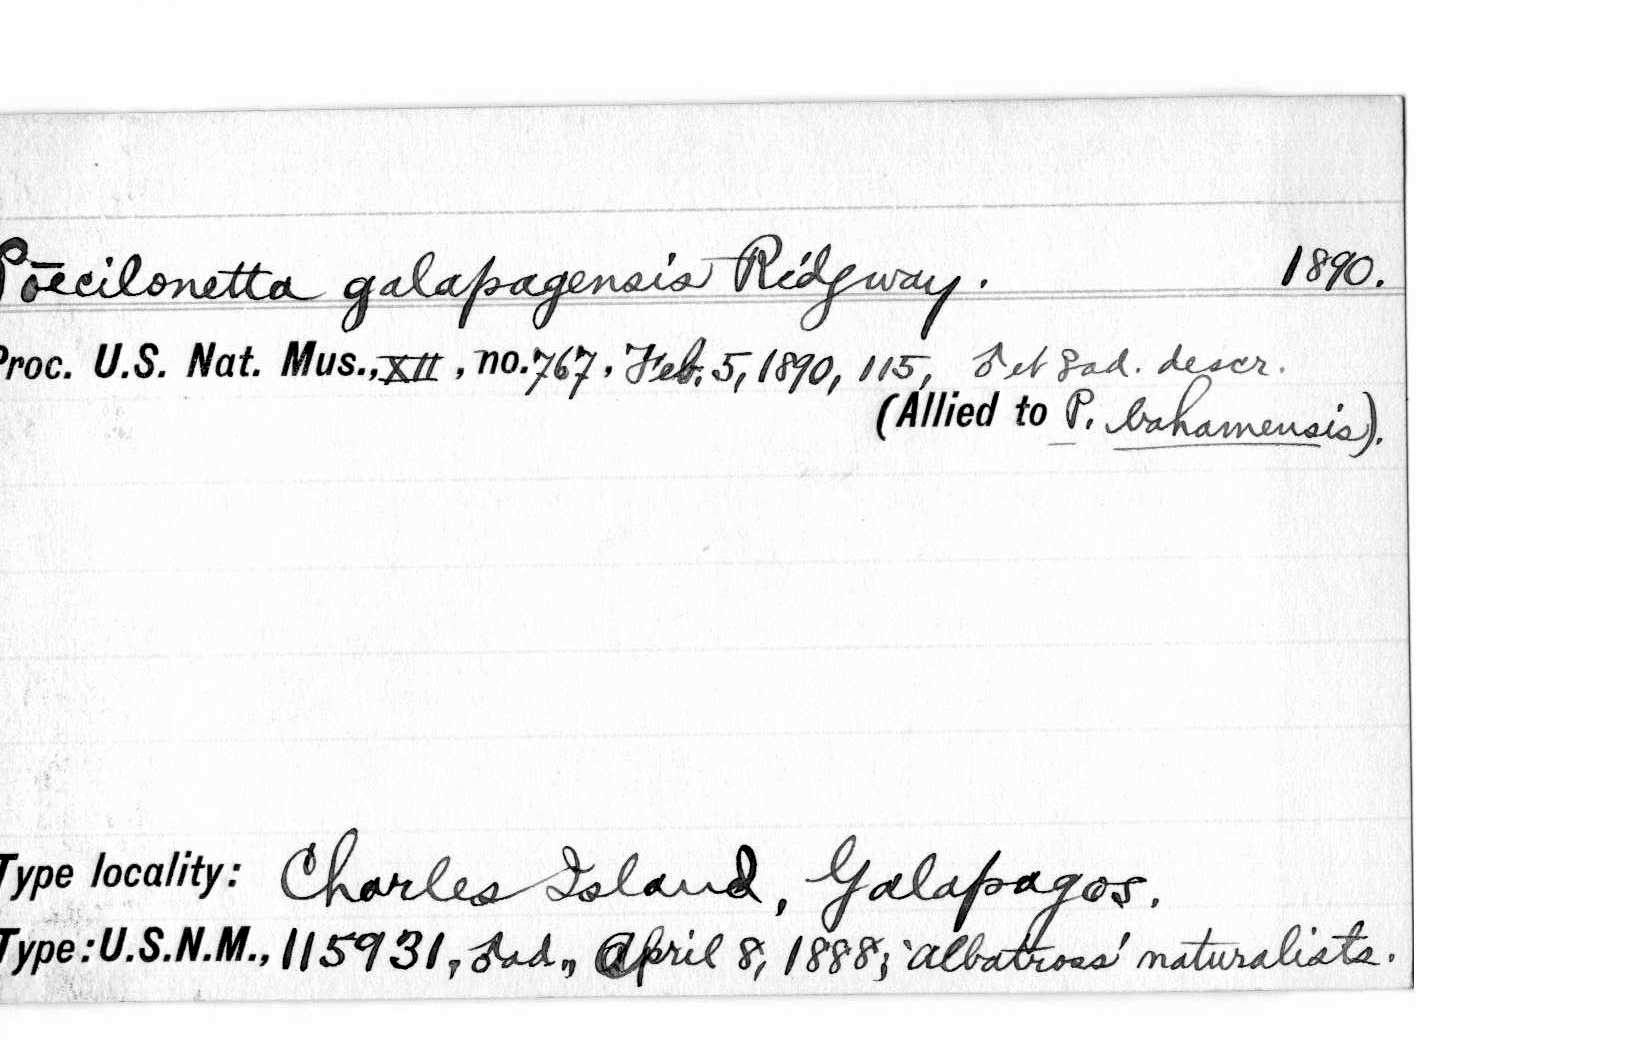 Pœcilonetta galapagensis Ridgway. 1890.
Proc. U.S. Nat. Mus., XII, no. 767, Feb. 5, 1890, 115, ♂ et ♀ ad. descr.
(Allied to P. bahamensis).
Type locality: Charles Island, Galapagos.
Type: U.S.N.M., 115931, ♂ ad., April 8, 1888; 'Albatross' naturalists.